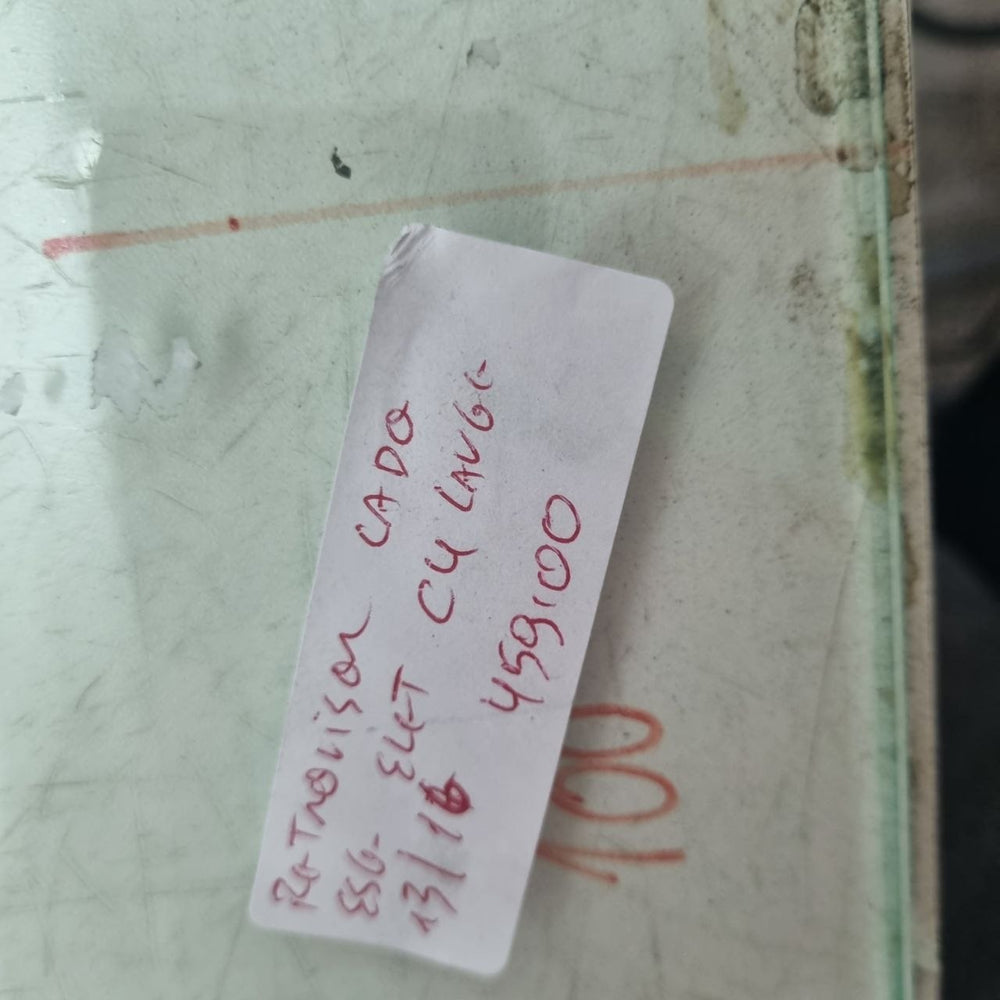 RETROVISOR LADO
ESQ- ELET C4
13/16 459,00
100